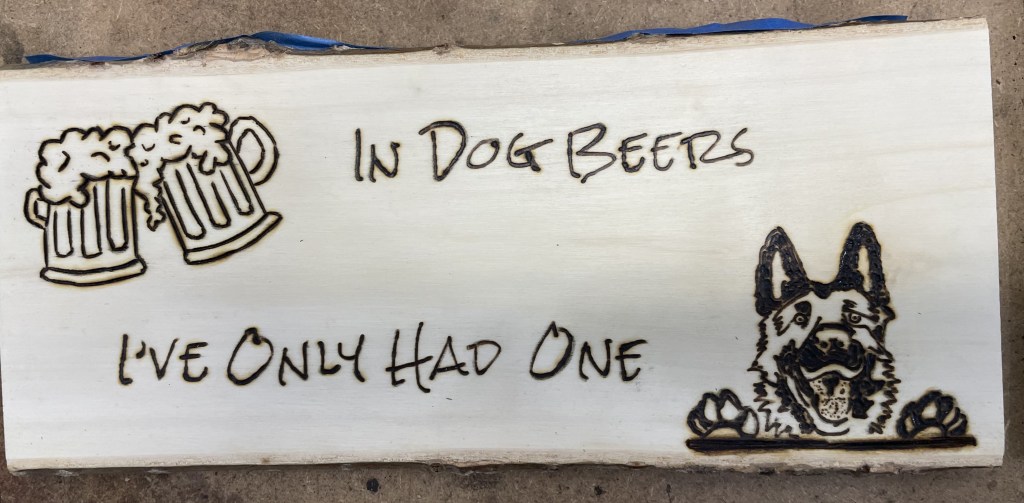 In Dog Beers
I've Only Had One